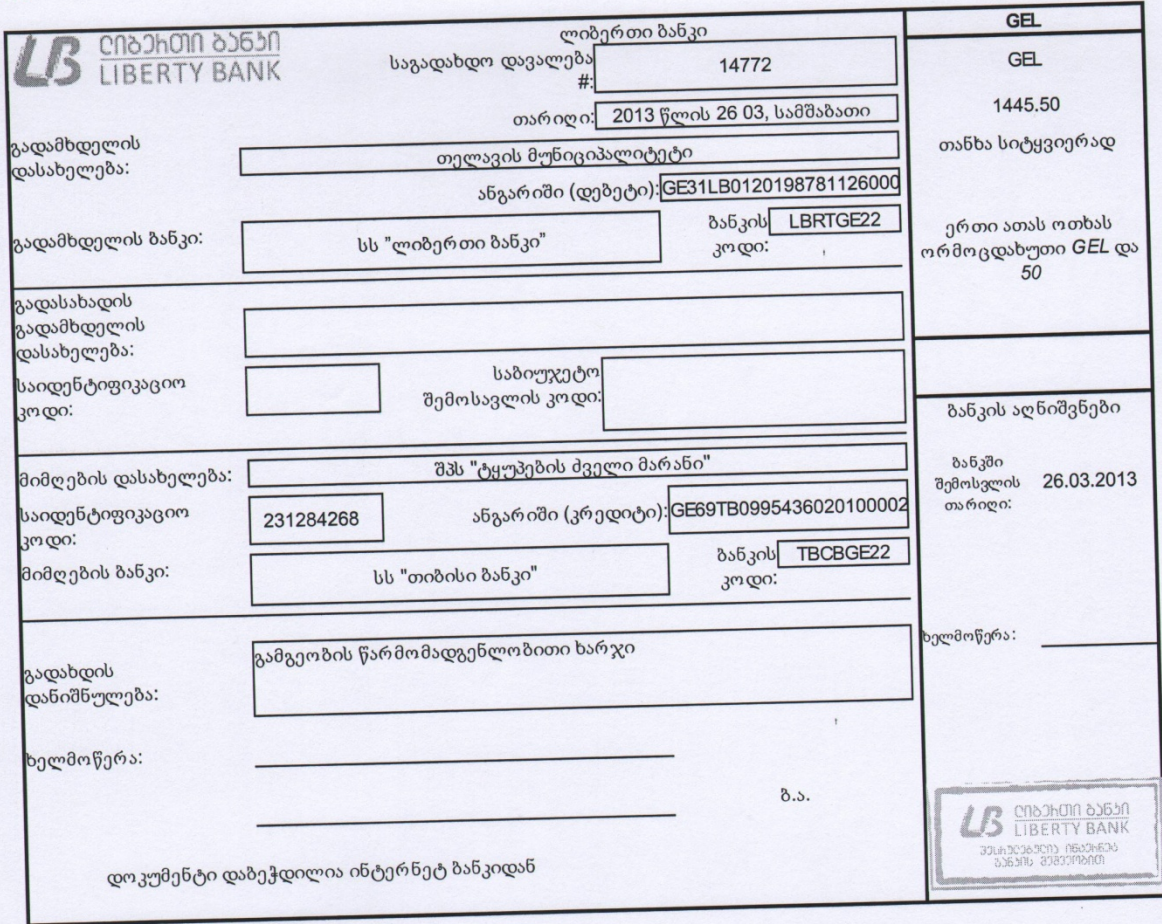 ლიბერთი ბანკი
LIBERTY BANK
ლიბერთი ბანკი
საგადახდო დავალება #: 14772
თარიღი: 2013 წლის 26 03, სამშაბათი
გადამხდელის
დასახელება:
თელავის მუნიციპალიტეტი
ანგარიში (დებეტი): GE31LB0120198781126000
გადამხდელის ბანკი: სს "ლიბერთი ბანკი"
ბანკის კოდი: LBRTGE22
გადასახადის
გადამხდელის
დასახელება:
საიდენტიფიკაციო
კოდი:
საბიუჯეტო
შემოსავლის კოდი:
მიმღების დასახელება: შპს "ტყუპების ძველი მარანი"
საიდენტიფიკაციო
კოდი:
231284268
ანგარიში (კრედიტი): GE69TB0995436020100002
მიმღების ბანკი: სს "თიბისი ბანკი"
ბანკის კოდი: TBCBGE22
გადახდის
დანიშნულება:
გამგეობის წარმომადგენლობითი ხარჯი
ხელმოწერა:
ბ.ა.
დოკუმენტი დაბეჭდილია ინტერნეტ ბანკიდან
GEL
GEL
1445.50
თანხა სიტყვიერად
ერთი ათას ოთხას
ორმოცდახუთი GEL და
50
ბანკის აღნიშვნები
ბანკში
შემოსვლის
თარიღი:
26.03.2013
ხელმოწერა:
LB ლიბერთი ბანკი
LIBERTY BANK
შესრულებულია ინტერნეტ
ბანკის მეშვეობით